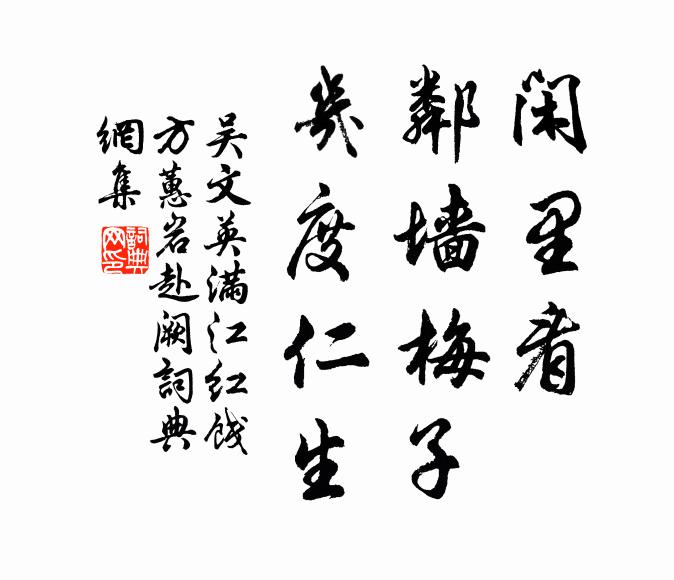 闲里看
鄰墙梅子
幾度仁生
吴文英满江红饯
方蕙岩赴阙詞典
網集
詞典
网印